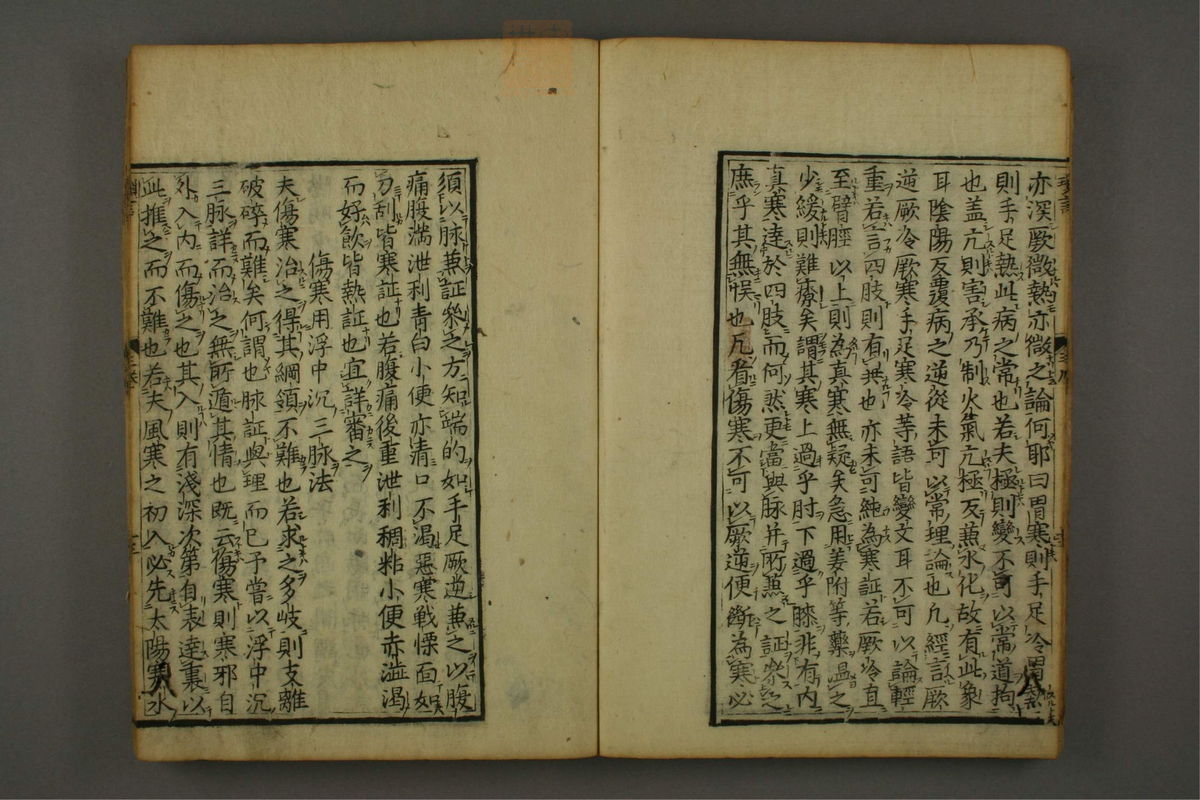 亦深厥微熱亦微之論何耶曰胃寒則手足冷胃熱
則手足熱此病之常也若夫極則變不可以常道拘
也盖亢則害承乃制火氣亢極反蒸水化故有此象
耳陰陽反覆病之逆從未可以常理論也凡經言厥
逆厥冷厥寒手足寒冷等語皆變文耳不可以論輕
重若言四肢則有異也亦未可純為寒証若厥冷直
至臂脛以上則為真寒無疑矣急用姜附等藥温之
少緩則難療矣謂其寒上過乎肘下過乎膝非有内
真寒達於四肢而何然更當與脉并所蒸之証參之
庶乎其無誤也凡看傷寒不可以厥逆便斷為寒必
須以脉兼証參之方知端的如手足厥逆兼之以腹
痛腹満泄利青白小便亦清口不渴惡寒戦慄面如
刀刮皆寒証也若腹痛後重泄利稠粘小便赤澁渴
而好飲皆熱証也宜詳審之
傷寒用浮中沉三脉法
夫傷寒治之得其綱領不難也若求之多岐則支離
破碎而難矣何謂也脉証與理而已予嘗以浮中沉
三脉詳而治之無所遁其情也既云傷寒則寒邪自
外入内而傷之也其入則有淺深次第自表達裏以
此推之而不難也若夫風寒之初入必先太陽寒水